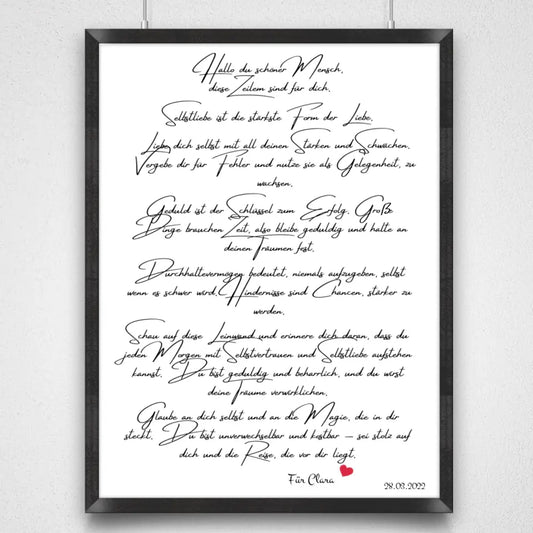 Hallo du schöner Mensch,
diese Zeilem sind für dich.
Selbstliebe ist die stärkste Form der Liebe.
Liebe dich selbst mit all deinen Stärken und Schwächen.
Vergebe dir für Fehler und nutze sie als Gelegenheit, zu
wachsen.
Geduld ist der Schlüssel zum Erfolg. Große
Dinge brauchen Zeit, also bleibe geduldig und halte an
deinen Träumen fest.
Durchhaltevermögen bedeutet, niemals aufzugeben, selbst
wenn es schwer wird. Hindernisse sind Chancen, stärker zu
werden.
Schau auf diese Leinwand und erinnere dich daran, dass du
jeden Morgen mit Selbstvertrauen und Selbstliebe aufstehen
kannst. Du bist geduldig und beharrlich, und du wirst
deine Träume verwirklichen.
Glaube an dich selbst und an die Magie, die in dir
steckt. Du bist unverwechselbar und kostbar – sei stolz auf
dich und die Reise, die vor dir liegt.
Für Clara
28.03.2022